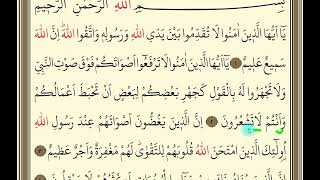 بِسْمِ اللهِ الرَّحْمٰنِ الرَّحِيمِ
يَٓا اَيُّهَا الَّذِينَ اٰمَنُوا لَا تُقَدِّمُوا بَيْنَ يَدَيِ اللهِ وَرَسُولِهِ وَاتَّقُوا اللهَ اِنَّ اللهَ
سَمِيعٌ عَلِيمٌ ١ يَٓا اَيُّهَا الَّذِينَ اٰمَنُوا لَا تَرْفَعُٓوا اَصْوَاتَكُمْ فَوْقَ صَوْتِ النَّبِيِّ
وَلَا تَجْهَرُوا لَهُ بِالْقَوْلِ كَجَهْرِ بَعْضِكُمْ لِبَعْضٍ اَنْ تَحْبَطَ اَعْمَالُكُمْ
وَاَنْتُمْ لَا تَشْعُرُونَ ٢ اِنَّ الَّذِينَ يَغُضُّونَ اَصْوَاتَهُمْ عِنْدَ رَسُولِ اللهِ
اُو۬لٰٓئِكَ الَّذِينَ امْتَحَنَ اللهُ قُلُوبَهُمْ لِلتَّقْوٰى لَهُمْ مَغْفِرَةٌ وَاَجْرٌ عَظِيمٌ ٣